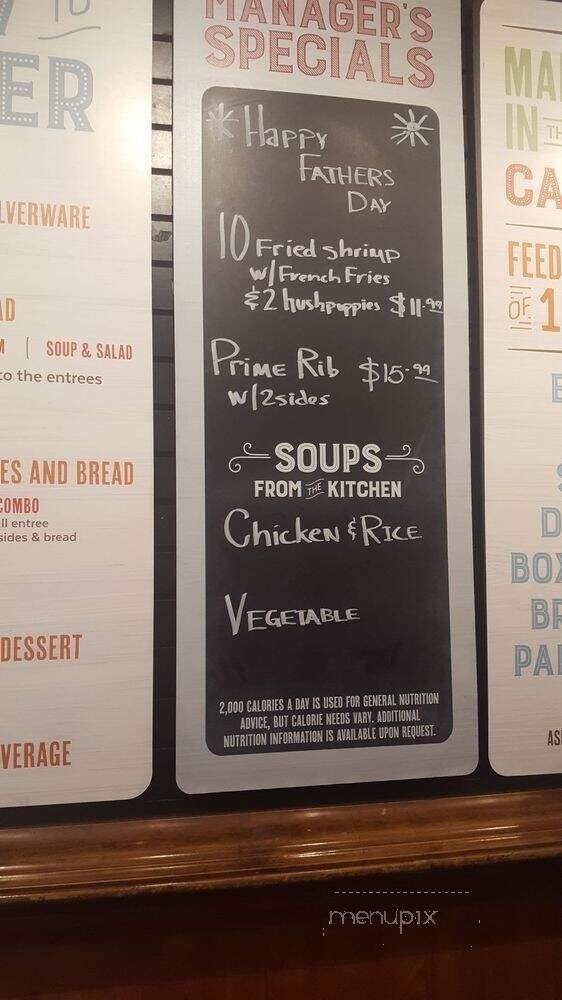 TO
ER
LVERWARE
AD
SOUP & SALAD
to the entrees
ES AND BREAD
COMBO
ll entree
sides & bread
DESSERT
VERAGE
MANAGER'S
SPECIALS
Happy
Fathers
Day
10 Fried shrimp
w/French Fries
& 2 hushpuppies $11.99
Prime Rib $15.99
w/2sides
SOUPS
FROM THE KITCHEN
Chicken & Rice
Vegetable
2,000 CALORIES A DAY IS USED FOR GENERAL NUTRITION
ADVICE, BUT CALORIE NEEDS VARY. ADDITIONAL
NUTRITION INFORMATION IS AVAILABLE UPON REQUEST.
MA
IN
CA
FEED
OF 1
D
BOX
BR
PA
AS
menupix